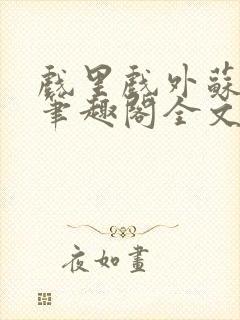 戲里戲外蘇
筆趣閣全文
夜如晝